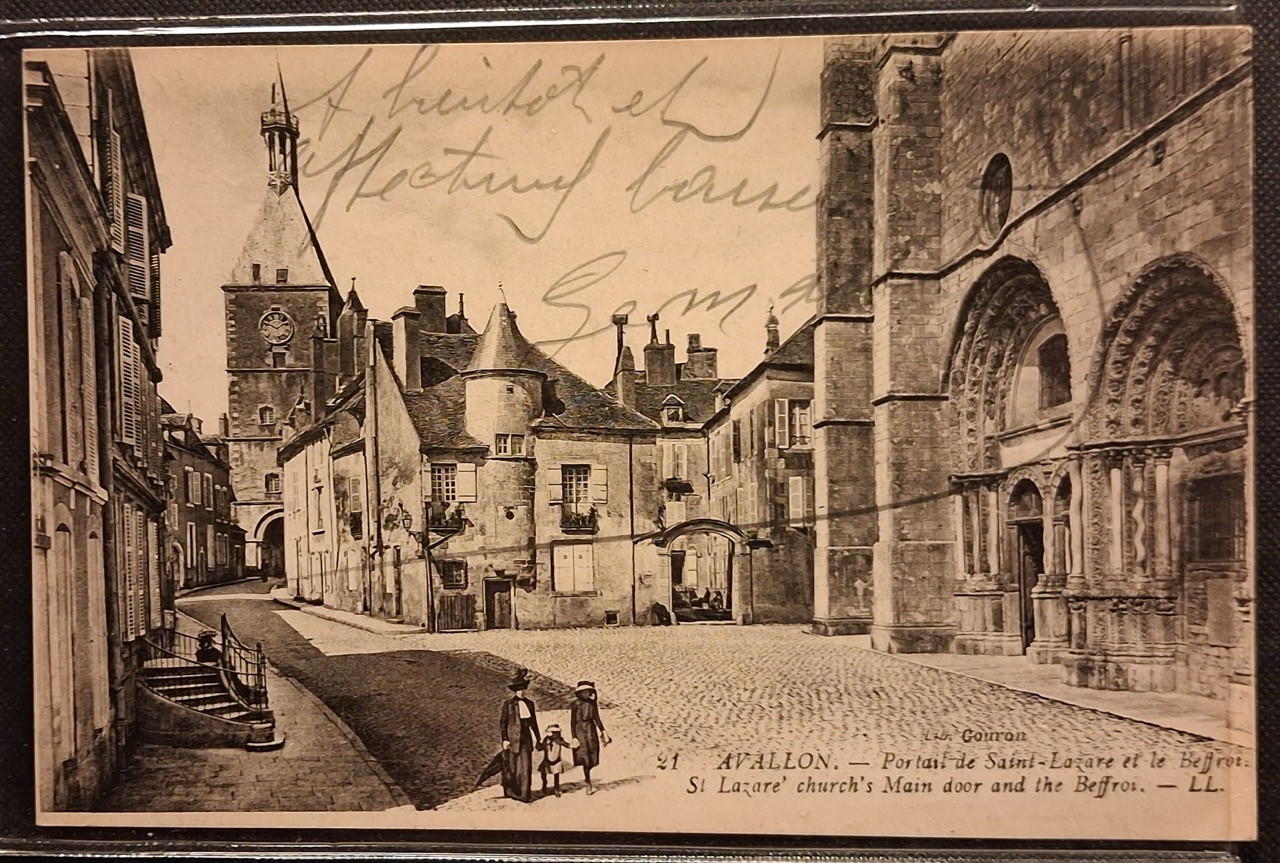 A bientôt et
affectueux baisers
Lib. Gouron
21 AVALLON. — Portail de Saint-Lazare et le Beffroi.
St Lazare' church's Main door and the Beffroi. — LL.